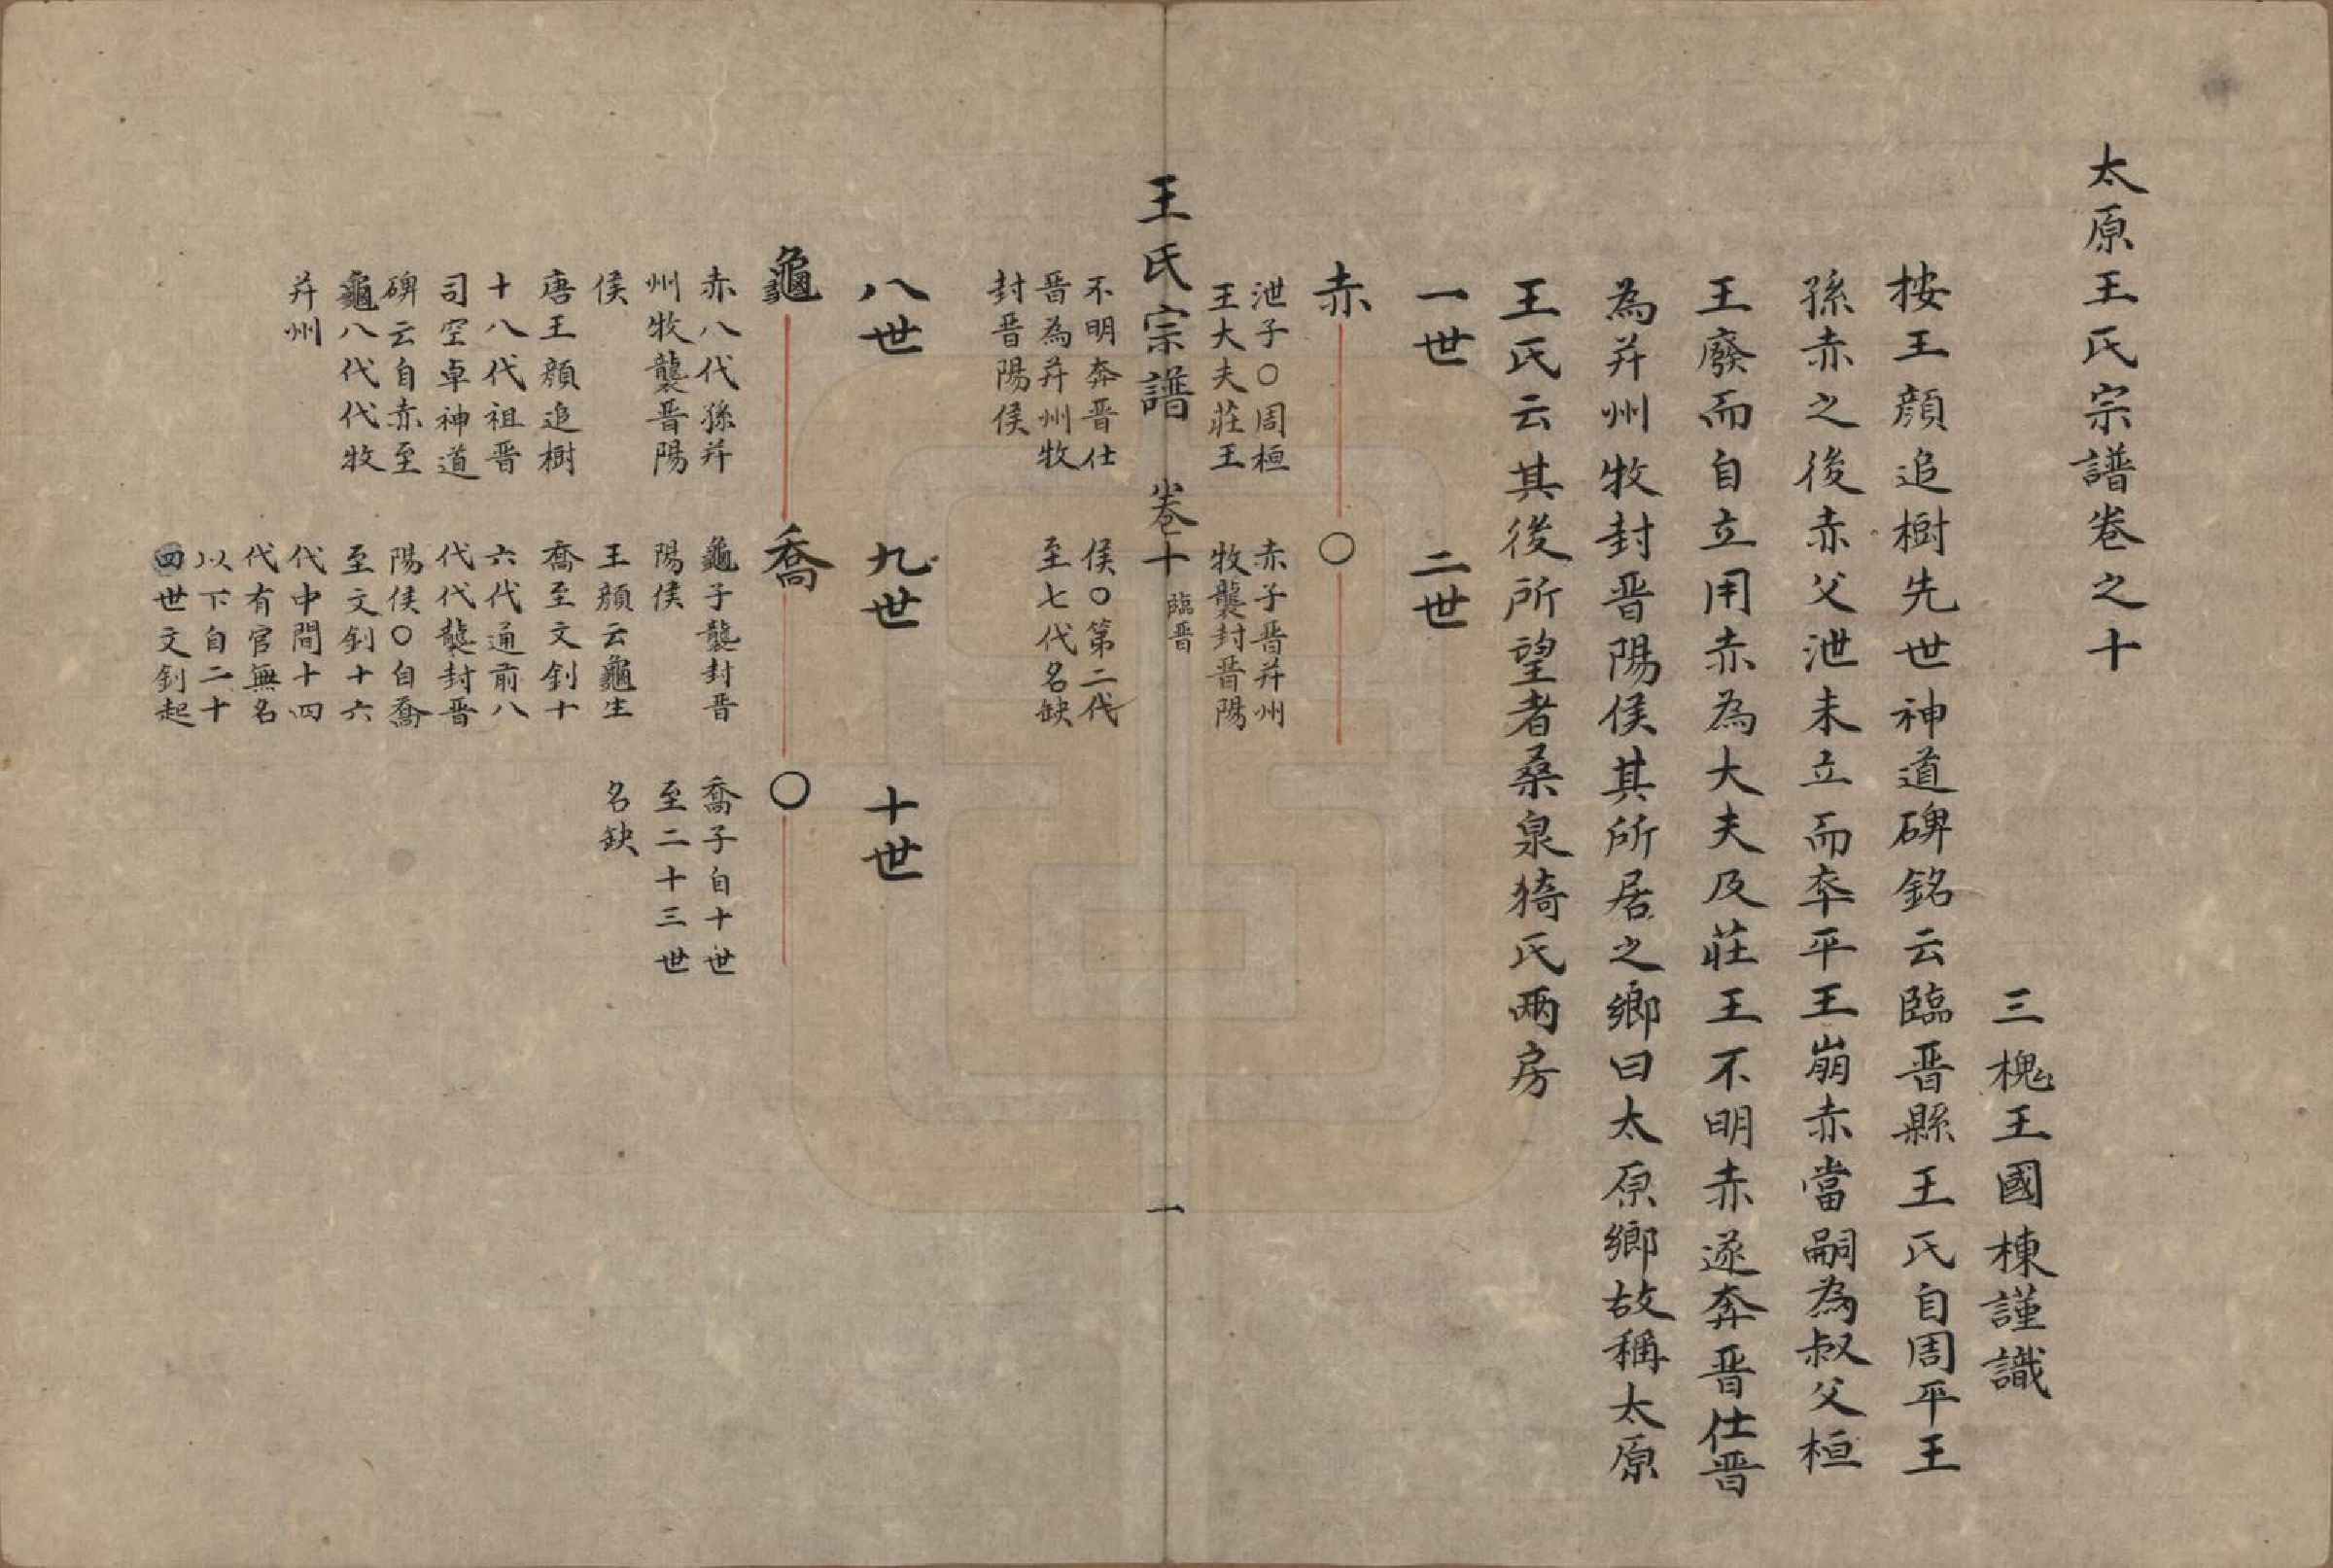 太原王氏宗譜卷之十
三槐王國棟謹識
按王顔追樹先世神道碑銘云臨晋縣王氏自周平王
孫赤之後赤父泄未立而卒平王崩赤當嗣為叔父桓
王廢而自立用赤為大夫及莊王不明赤遂奔晋仕晋
為并州牧封晋陽侯其所居之鄉曰太原鄉故稱太原
王氏云其後所望者桑泉猗氏兩房
一世
二世
赤
○
泄子○周桓
王大夫莊王
不明奔晋仕
晋為并州牧
封晋陽侯
赤子晋并州
牧襲封晋陽
侯○第二代
至七代名缺
王氏宗譜
卷十
臨晋
一
八世
九世
十世
龜
喬
○
赤八代孫并
州牧襲晋陽
侯
唐王顔追樹
十八代祖晋
司空卓神道
碑云自赤至
龜八代代牧
并州
龜子襲封晋
陽侯
王顔云龜生
喬至文釗十
六代通前八
代代襲封晋
陽侯○自喬
至文釗十六
代中間十四
代有官無名
以下自二十
四世文釗起
喬子自十世
至二十三世
名缺